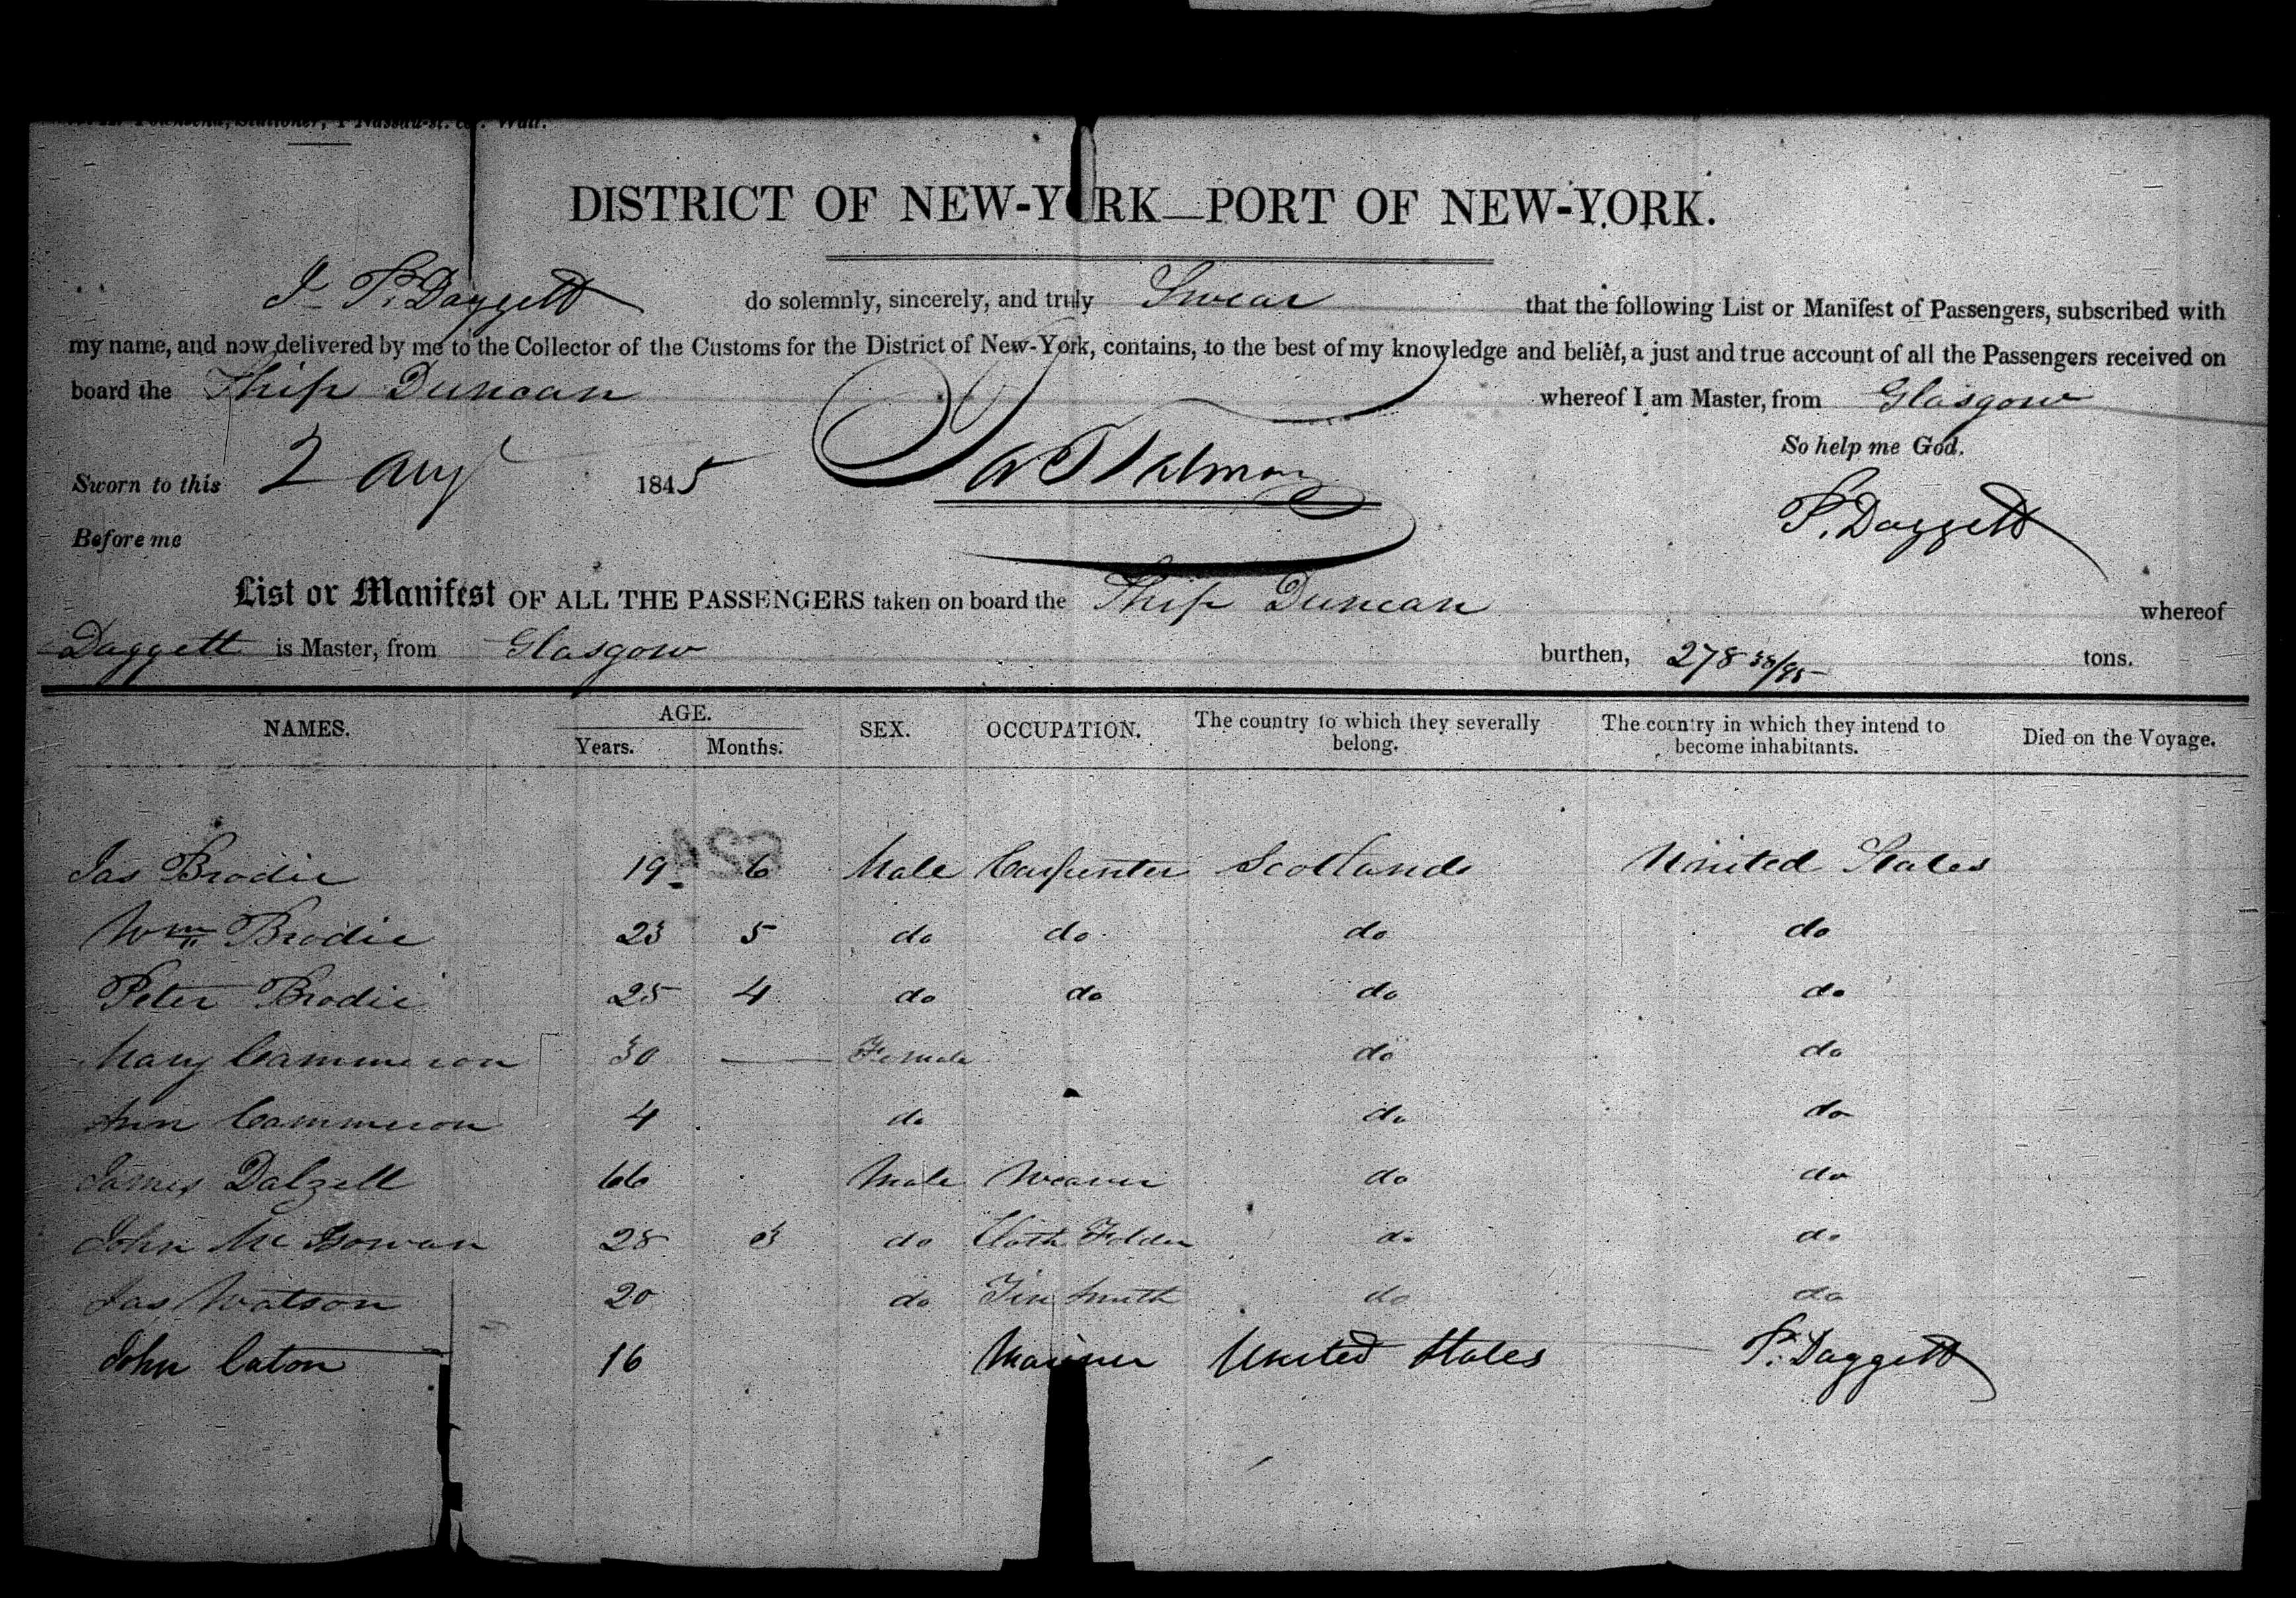 Stationer, 1 Nassau-st. cor. Wall.
DISTRICT OF NEW-YORK—PORT OF NEW-YORK.
I P. Daggett do solemnly, sincerely, and truly Swear that the following List or Manifest of Passengers, subscribed with
my name, and now delivered by me to the Collector of the Customs for the District of New-York, contains, to the best of my knowledge and belief, a just and true account of all the Passengers received on
board the Ship Duncan whereof I am Master, from Glasgow
So help me God.
Sworn to this 2 Aug 1845
P. Daggett
Before me
List or Manifest OF ALL THE PASSENGERS taken on board the Ship Duncan whereof
Daggett is Master, from Glasgow burthen, 278 38/95 tons.
NAMES. AGE. SEX. OCCUPATION. The country to which they severally belong. The country in which they intend to become inhabitants. Died on the Voyage.
Years. Months.
Jas Brodie 19 6 Male Carpenter Scotland United States
Wm Brodie 23 5 do do do do
Peter Brodie 25 4 do do do do
Mary Cammeron 30 — Female do do
Ann Cammeron 4 do do do
James Dalzell 66 Male Weaver do do
John McGowan 28 3 do Cloth Folder do do
Jas Watson 20 do Tin Smith do do
John Caton 16 Mariner United States P. Daggett